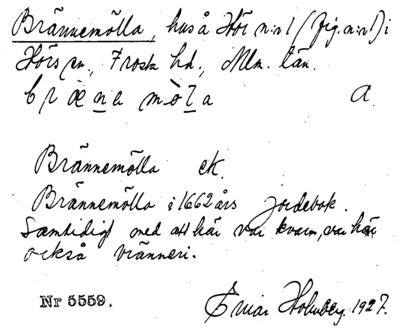 Brännemölla, hus å Hör n:o 1 (fig. n:o 1) i
Hörs sn., Frosta hd., Mlm. län.
bræ̀na mø̀la A.
Brännemölla ek.
Brännemölla i 1662 års jordebok.
Samtidigt med att här var kvarn, var här
också vränneri.
Nr 5559. Einar Holmberg. 1927.